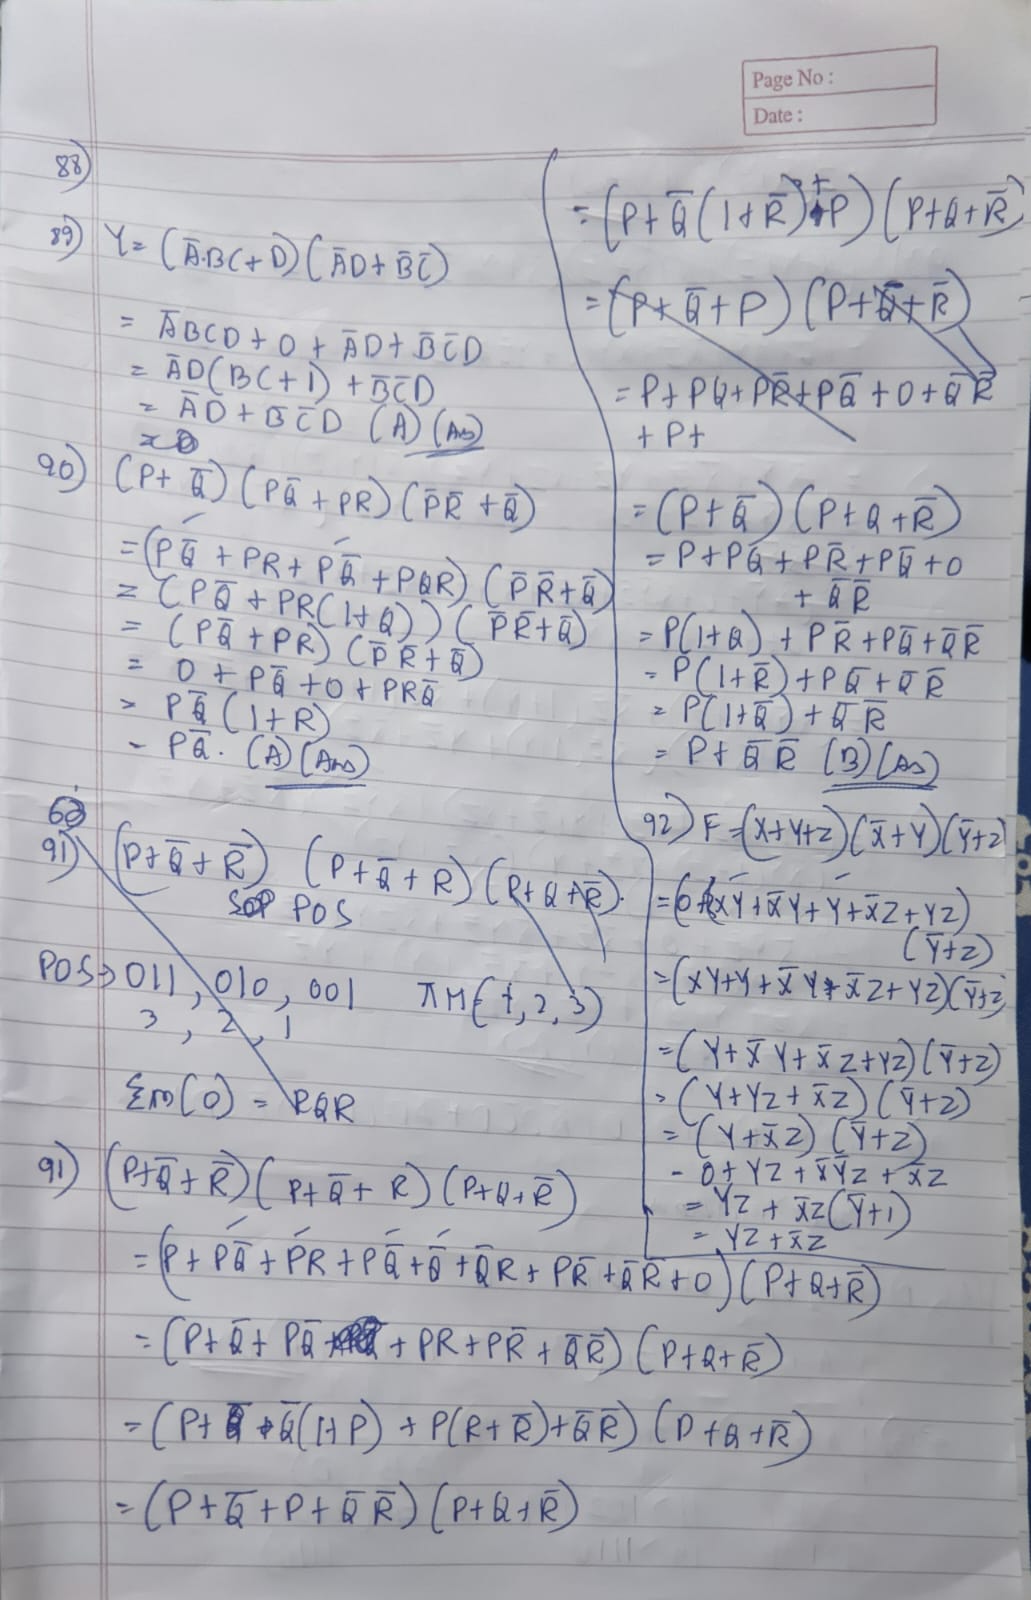 Page No :
Date :
88)
89) Y = (A̅.BC+D)(A̅D+B̅C̅)
= A̅BCD + 0 + A̅D + B̅C̅D
= A̅D(BC+1) + B̅C̅D
= A̅D + B̅C̅D (A)(Ans)
90) (P+Q̅)(PQ̅+PR)(P̅R̅+Q̅)
=(PQ̅+PR+PQ̅+PQR)(P̅R̅+Q̅)
= (PQ̅+PR(1+Q))(P̅R̅+Q̅)
= (PQ̅+PR)(P̅R̅+Q̅)
= 0 + PQ̅ + 0 + PRQ̅
= PQ̅(1+R)
= PQ̅. (A)(Ans)
91) (P+Q̅+R̅) (P+Q̅+R)(P+Q+R̅).
POS
POS → 011, 010, 001 πM(1,2,3)
3, 2, 1
Σm(0) = PQR
91) (P+Q̅+R̅)(P+Q̅+R)(P+Q+R̅)
=(P+PQ̅+PR+PQ̅+Q̅+Q̅R+PR̅+Q̅R̅+0)(P+Q+R̅)
=(P+Q̅+PQ̅+PR+PR̅+Q̅R̅)(P+Q+R̅)
=(P+Q̅(1+P)+P(R+R̅)+Q̅R̅)(P+Q+R̅)
=(P+Q̅+P+Q̅R̅)(P+Q+R̅)
=(P+Q̅(1+R̅)+P)(P+Q+R̅)
=(P+Q̅+P)(P+Q+R̅)
=P+PQ+PR̅+PQ̅+0+Q̅R̅
+P+
=(P+Q̅)(P+Q+R̅)
=P+PQ+PR̅+PQ̅+0
+Q̅R̅
=P(1+Q)+PR̅+PQ̅+Q̅R̅
=P(1+R̅)+PQ̅+Q̅R̅
=P(1+Q̅)+Q̅R̅
=P+Q̅R̅ (B)(Ans)
92) F=(X+Y+Z)(X̅+Y)(Y̅+Z)
=(0+XY+X̅Y+Y+X̅Z+YZ)
(Y̅+Z)
=(XY+Y+X̅Y+X̅Z+YZ)(Y̅+Z)
=(Y+X̅Y+X̅Z+YZ)(Y̅+Z)
=(Y+YZ+X̅Z)(Y̅+Z)
=(Y+X̅Z)(Y̅+Z)
=0+YZ+X̅Y̅Z+X̅Z
=YZ+X̅Z(Y̅+1)
=YZ+X̅Z